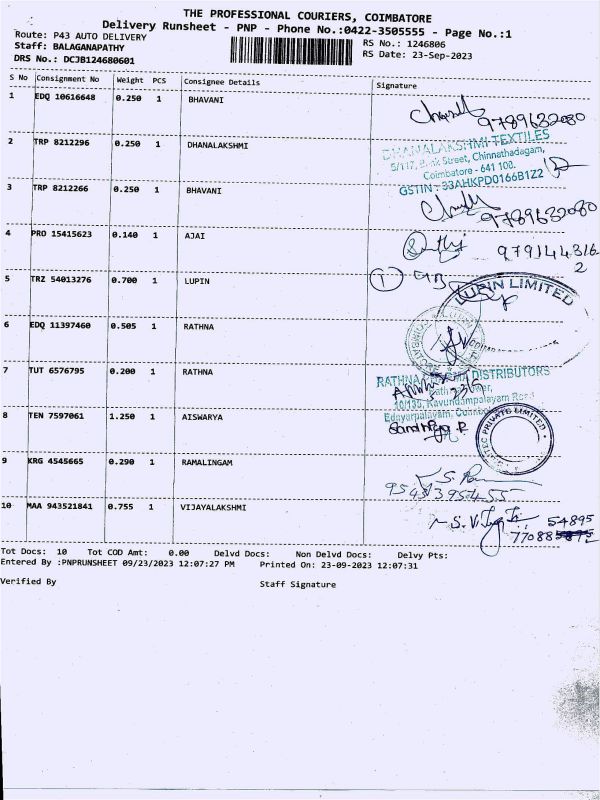 THE PROFESSIONAL COURIERS, COIMBATORE
Delivery Runsheet - PNP - Phone No.:0422-3505555 - Page No.:1
Route: P43 AUTO DELIVERY
Staff: BALAGANAPATHY
DRS No.: DCJB124680601
RS No.: 1246806
RS Date: 23-Sep-2023
S No Consignment No Weight PCS Consignee Details Signature
1 EDQ 10616648 0.250 1 BHAVANI
9789632080
2 TRP 8212296 0.250 1 DHANALAKSHMI
DHANALAKSHMI TEXTILES
5/117, Bank Street, Chinnathadagam,
Coimbatore - 641 108.
GSTIN - 33AHKPD0166B1Z2
3 TRP 8212266 0.250 1 BHAVANI
9789632080
4 PRO 15415623 0.140 1 AJAI
979144316
2
5 TRZ 54013276 0.700 1 LUPIN
1
LUPIN LIMITED
6 EDQ 11397460 0.505 1 RATHNA
7 TUT 6576795 0.200 1 RATHNA
RATHNA DISTRIBUTORS
10/135, Kavundampalayam Road
Edayarpalayam,
8 TEN 7597061 1.250 1 AISWARYA
Sandhiya R
PRIVATE LIMITED
9 KRG 4545665 0.290 1 RAMALINGAM
10 MAA 943521841 0.755 1 VIJAYALAKSHMI
54895
Tot Docs: 10 Tot COD Amt: 0.00 Delvd Docs: Non Delvd Docs: Delvy Pts:
Entered By :PNPRUNSHEET 09/23/2023 12:07:27 PM Printed On: 23-09-2023 12:07:31
Verified By Staff Signature